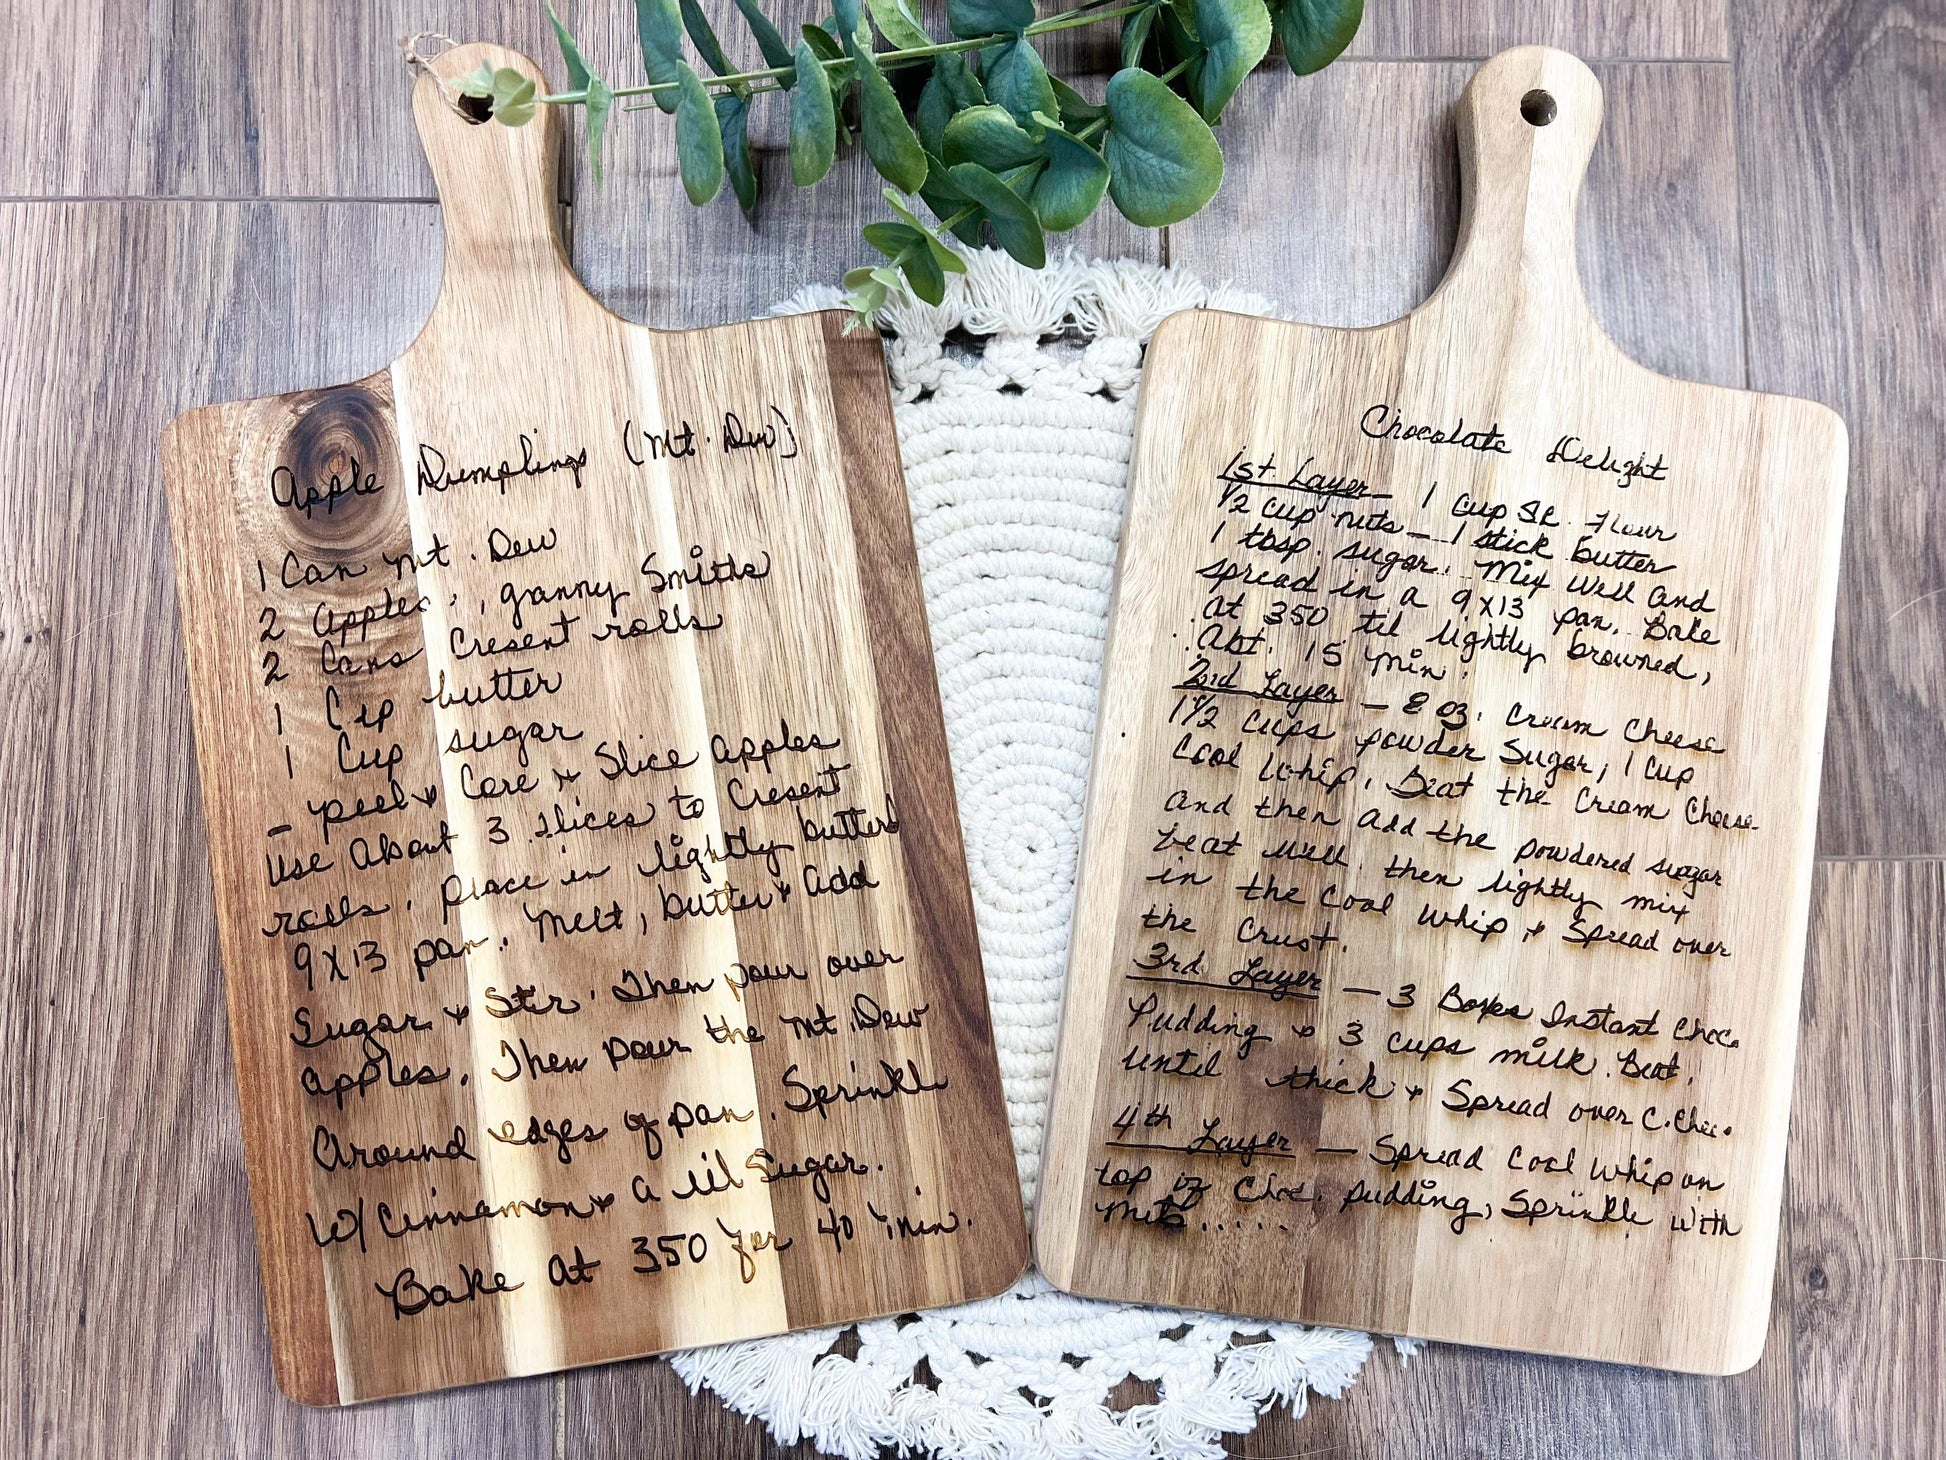 Apple Dumplings (Mt. Dew)
1 Can Mt. Dew
2 Apples, granny Smiths
2 Cans Cresent rolls
1 Cup butter
1 Cup sugar
- peel & Core & Slice apples
Use About 3 slices to Cresent
rolls, place in lightly butterd
9X13 pan. Melt, butter & add
Sugar & Stir. Then pour over
apples. Then pour the Mt. Dew
Around edges of pan. Sprinkle
W/ Cinnamon & a lil Sugar.
Bake at 350 for 40 min.
Chocolate Delight
1st Layer - 1 cup SR. Flour
1/2 cup nuts - 1 stick butter
1 tbsp. sugar. Mix Well and
spread in a 9X13 pan. Bake
at 350 til lightly browned,
Abt. 15 min.
2nd Layer - 8 oz. Cream Cheese
1 1/2 cups powder Sugar, 1 cup
Cool Whip, Beat the Cream Cheese
and then add the powdered sugar
beat well. then lightly mix
in the Cool Whip & Spread over
the Crust.
3rd Layer - 3 Boxes Instant Choc.
Pudding & 3 cups milk. Beat
until thick & Spread over C. Chee.
4th Layer - Spread Cool Whip on
top of Choc. pudding, Sprinkle with
nuts.....